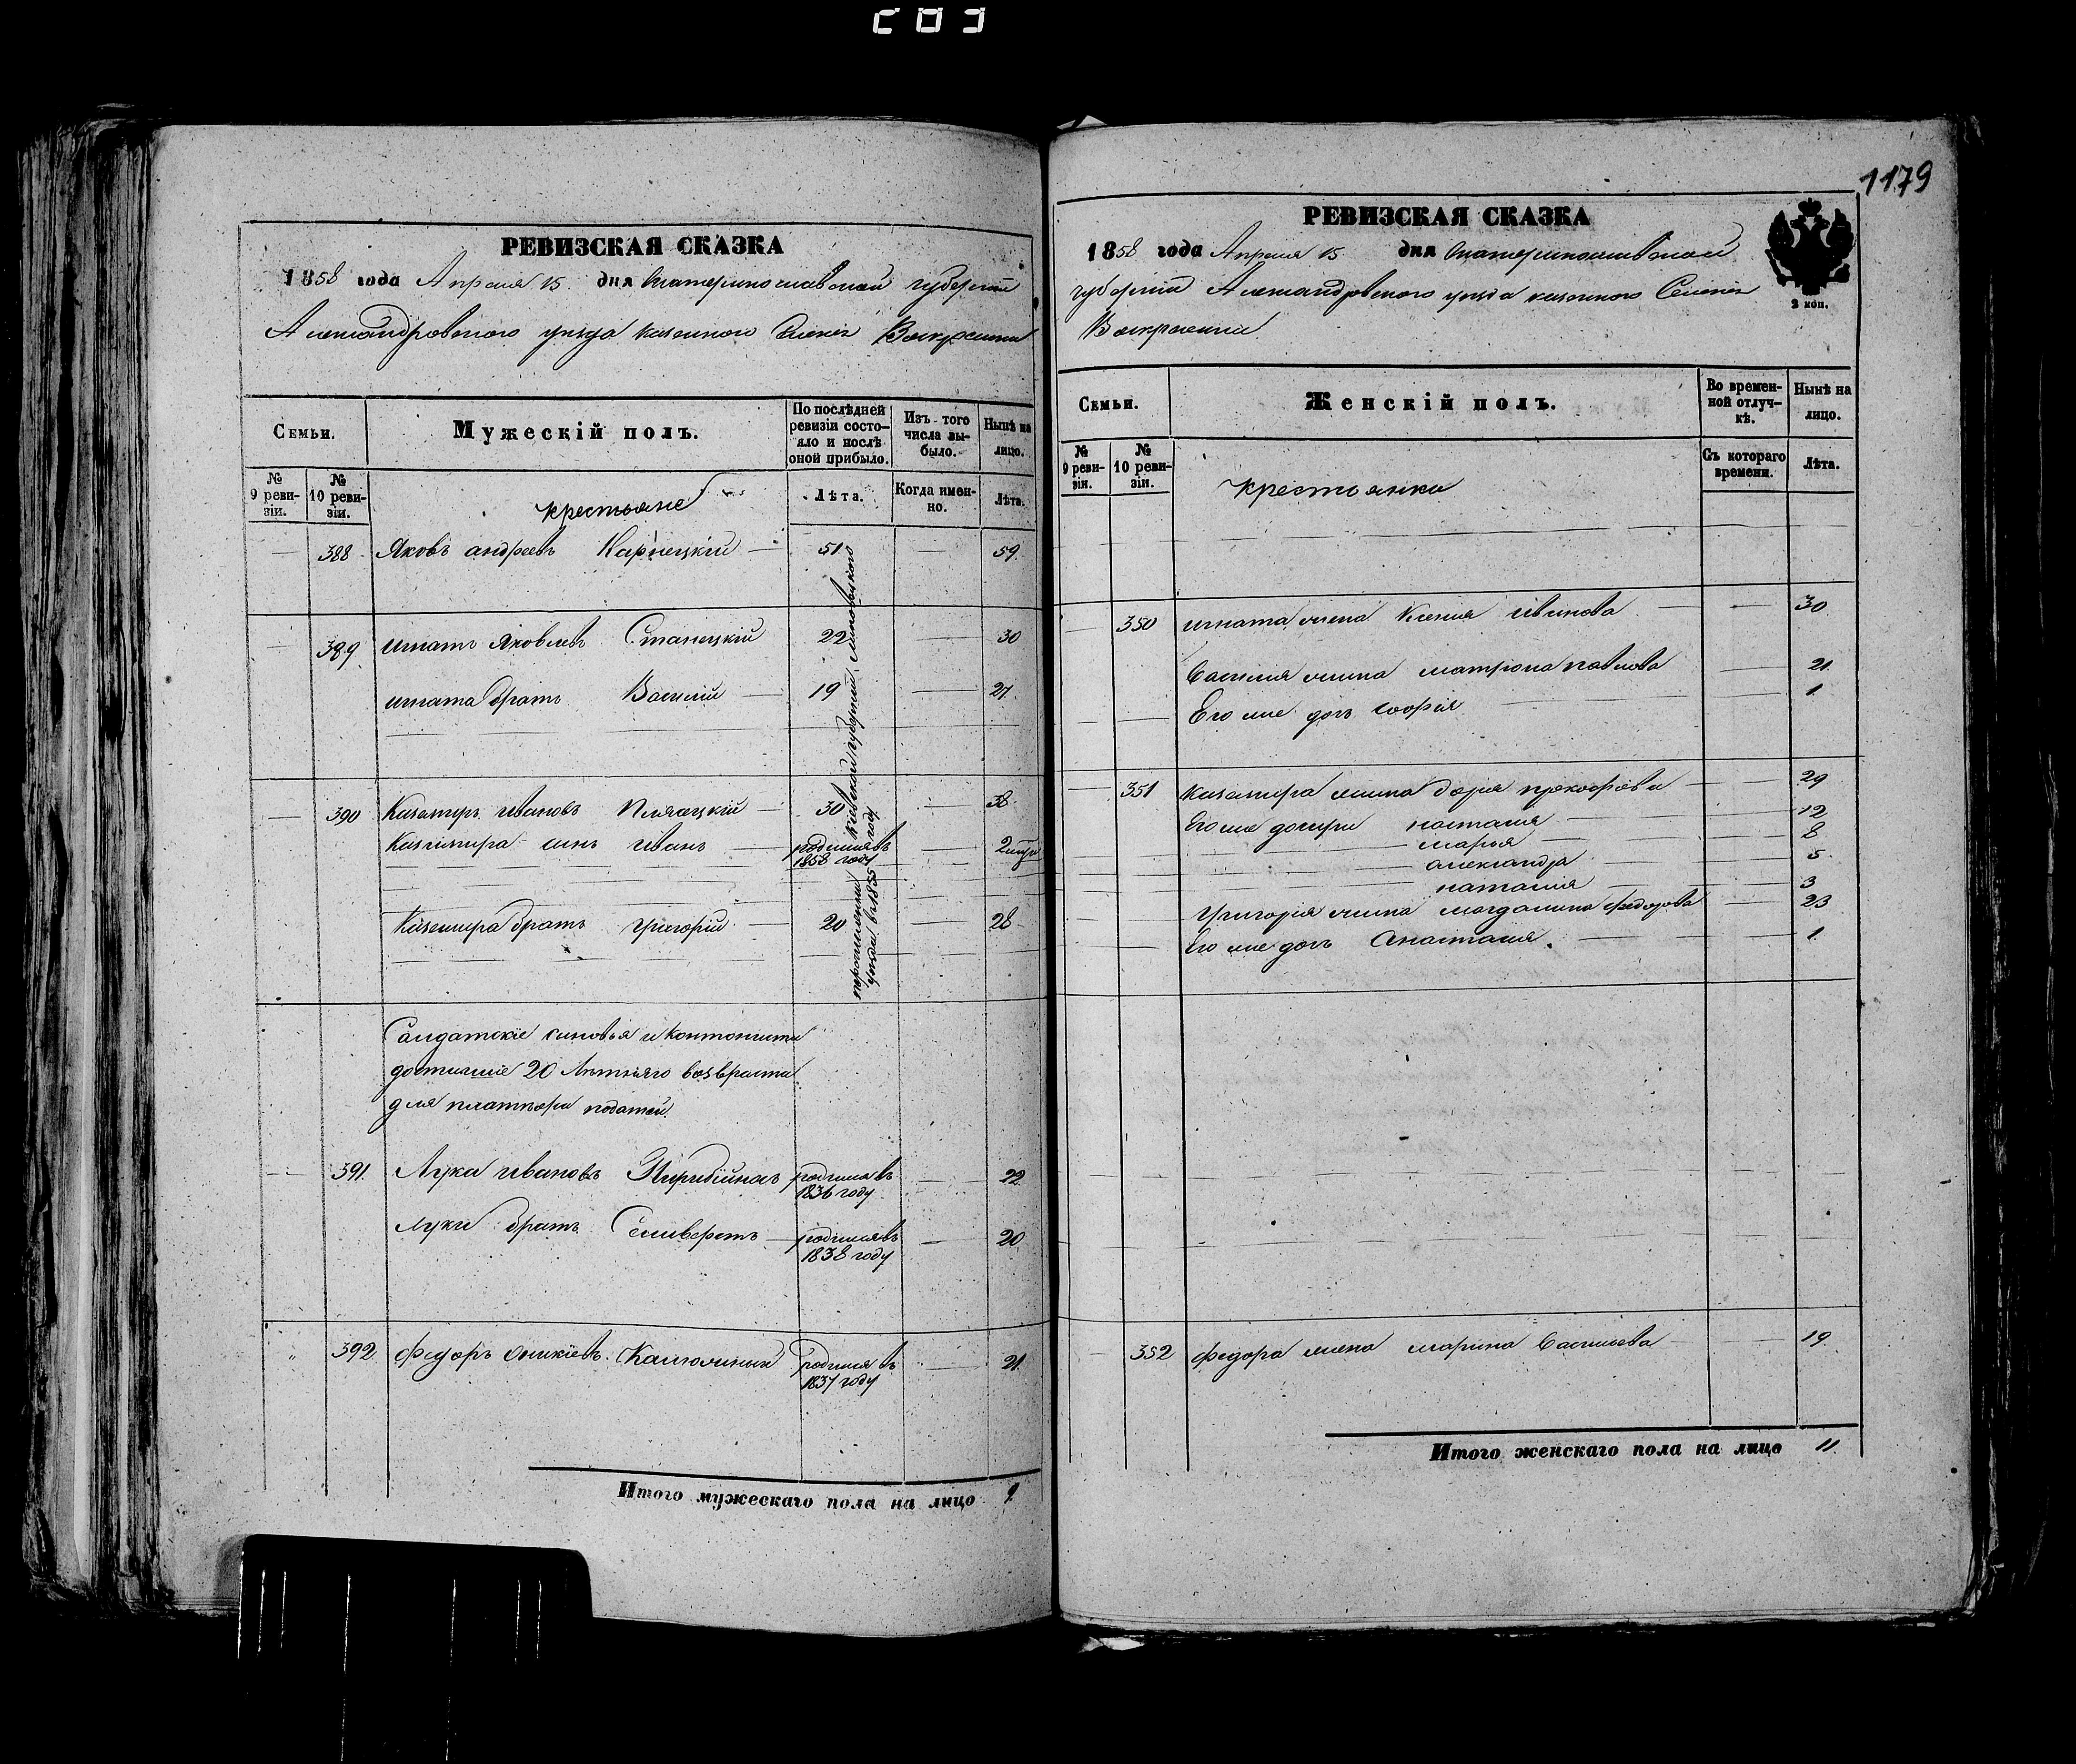 1179
РЕВИЗСКАЯ СКАЗКА
1858 года Апреля 15 дня Екатеринославской губерніи
Александровского уезда казенного Селенія
Семьи.
Мужескій полъ.
По послѣдней ревизіи состояло и послѣ оной прибыло.
Изъ того числа выбыло.
Нынѣ на лицо.
№ 9 ревизіи.
№ 10 ревизіи.
крестьяне
Лѣта.
Когда именно.
Лѣта.
388 Яковъ андреевъ 51 59
389 игнатъ Яковлевъ Станецкій 22 30
игната братъ Василій 19 27
390 Каземиръ ивановъ 30 38
Каземира сынъ иванъ родился въ 1858 году
Каземира братъ григорій 20 28
перечислены Кіевской губерніи Липовецкого уезда въ 1855 году
Салдатскіе сыновья и Кантонисты
достигшіе 20 Летняго возвраста
для платежа податей.
391 Лука ивановъ родился въ 1836 году 22
луки братъ Селиверстъ родился въ 1838 году 20
392 федоръ оникіевъ родился въ 1837 году 21
Итого мужескаго пола на лицо 9
РЕВИЗСКАЯ СКАЗКА
1858 года Апреля 15 дня Екатеринославской
губерніи Александровского уезда казенного Селенія
2 коп.
Семьи.
Женскій полъ.
Во временной отлучкѣ.
Нынѣ на лицо.
№ 9 ревизіи.
№ 10 ревизіи.
крестьянки
Съ котораго времени.
Лѣта.
350 игната жена Ксения иванова 30
Василия жена матрiона павлова 21
Его же дочь софія 1
351 каземира жена дарiя прокофiева 29
Его же дочери настасия 12
марья 8
александра 5
наталия 3
григорія жена магдалина федорова 23
Его же дочь Анастасия 1
352 федора жена марина Васильева 19
Итого женскаго пола на лицо 11